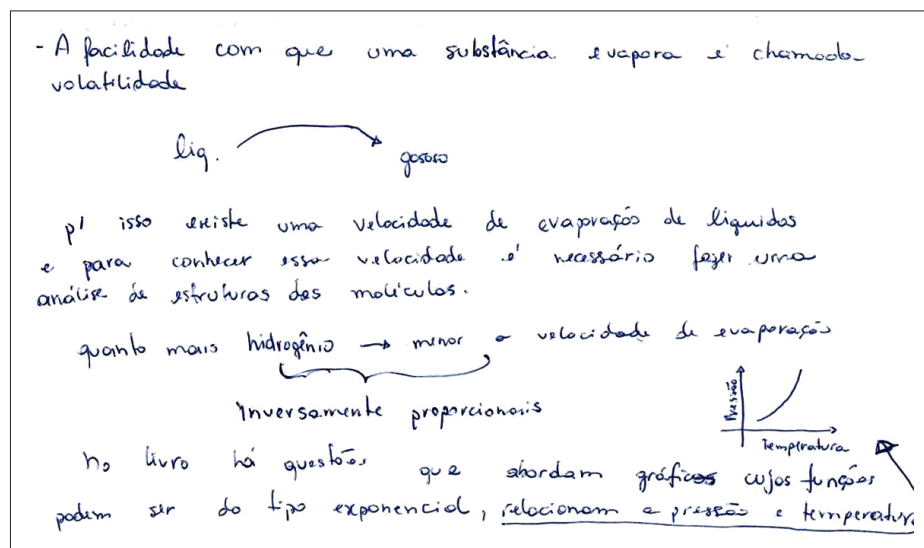 - A facilidade com que uma substância evapora é chamada
volatilidade
liq.
gasoso
p/ isso existe uma velocidade de evaporação de líquidos
e para conhecer essa velocidade é necessário fazer uma
análise de estruturas das moléculas.
quanto mais hidrogênio → menor a velocidade de evaporação
inversamente proporcionais
Pressão
Temperatura
no livro há questões que abordam gráficos cujos funções
podem ser do tipo exponencial, relacionam a pressão e temperatura